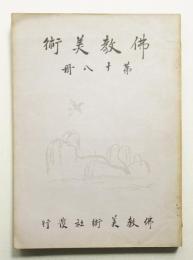 佛教美術
第十八冊
佛教美術社發行